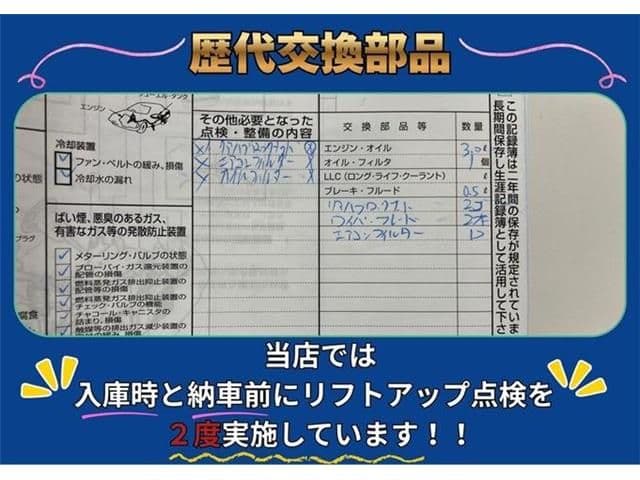 歴代交換部品
フューエル・タンク
エンジン
冷却装置
ファン・ベルトの緩み、損傷
冷却水の漏れ
の状態
プラグ
ばい煙、悪臭のあるガス、
有害なガス等の発散防止装置
メターリング・バルブの状態
ブローバイ・ガス還元装置の
配管の損傷
燃料蒸発ガス排出抑止装置の
配管等の損傷
燃料蒸発ガス排出抑止装置の
チェック・バルブの機能
チャコール・キャニスタの
詰まり、損傷
触媒等の排出ガス減少装置の
その他必要となった
点検・整備の内容
エアコンフィルター
オイルフィルター
交換部品等 数量
エンジン・オイル 3.0ℓ
オイル・フィルタ 1個
LLC(ロング・ライフ・クーラント) ℓ
ブレーキ・フルード 0.5ℓ
エアコンフィルター
この記録簿は二年間の保存が規定されていま
長期間保存し生涯記録簿として活用して下さ
当店では
入庫時と納車前にリフトアップ点検を
２度実施しています！！